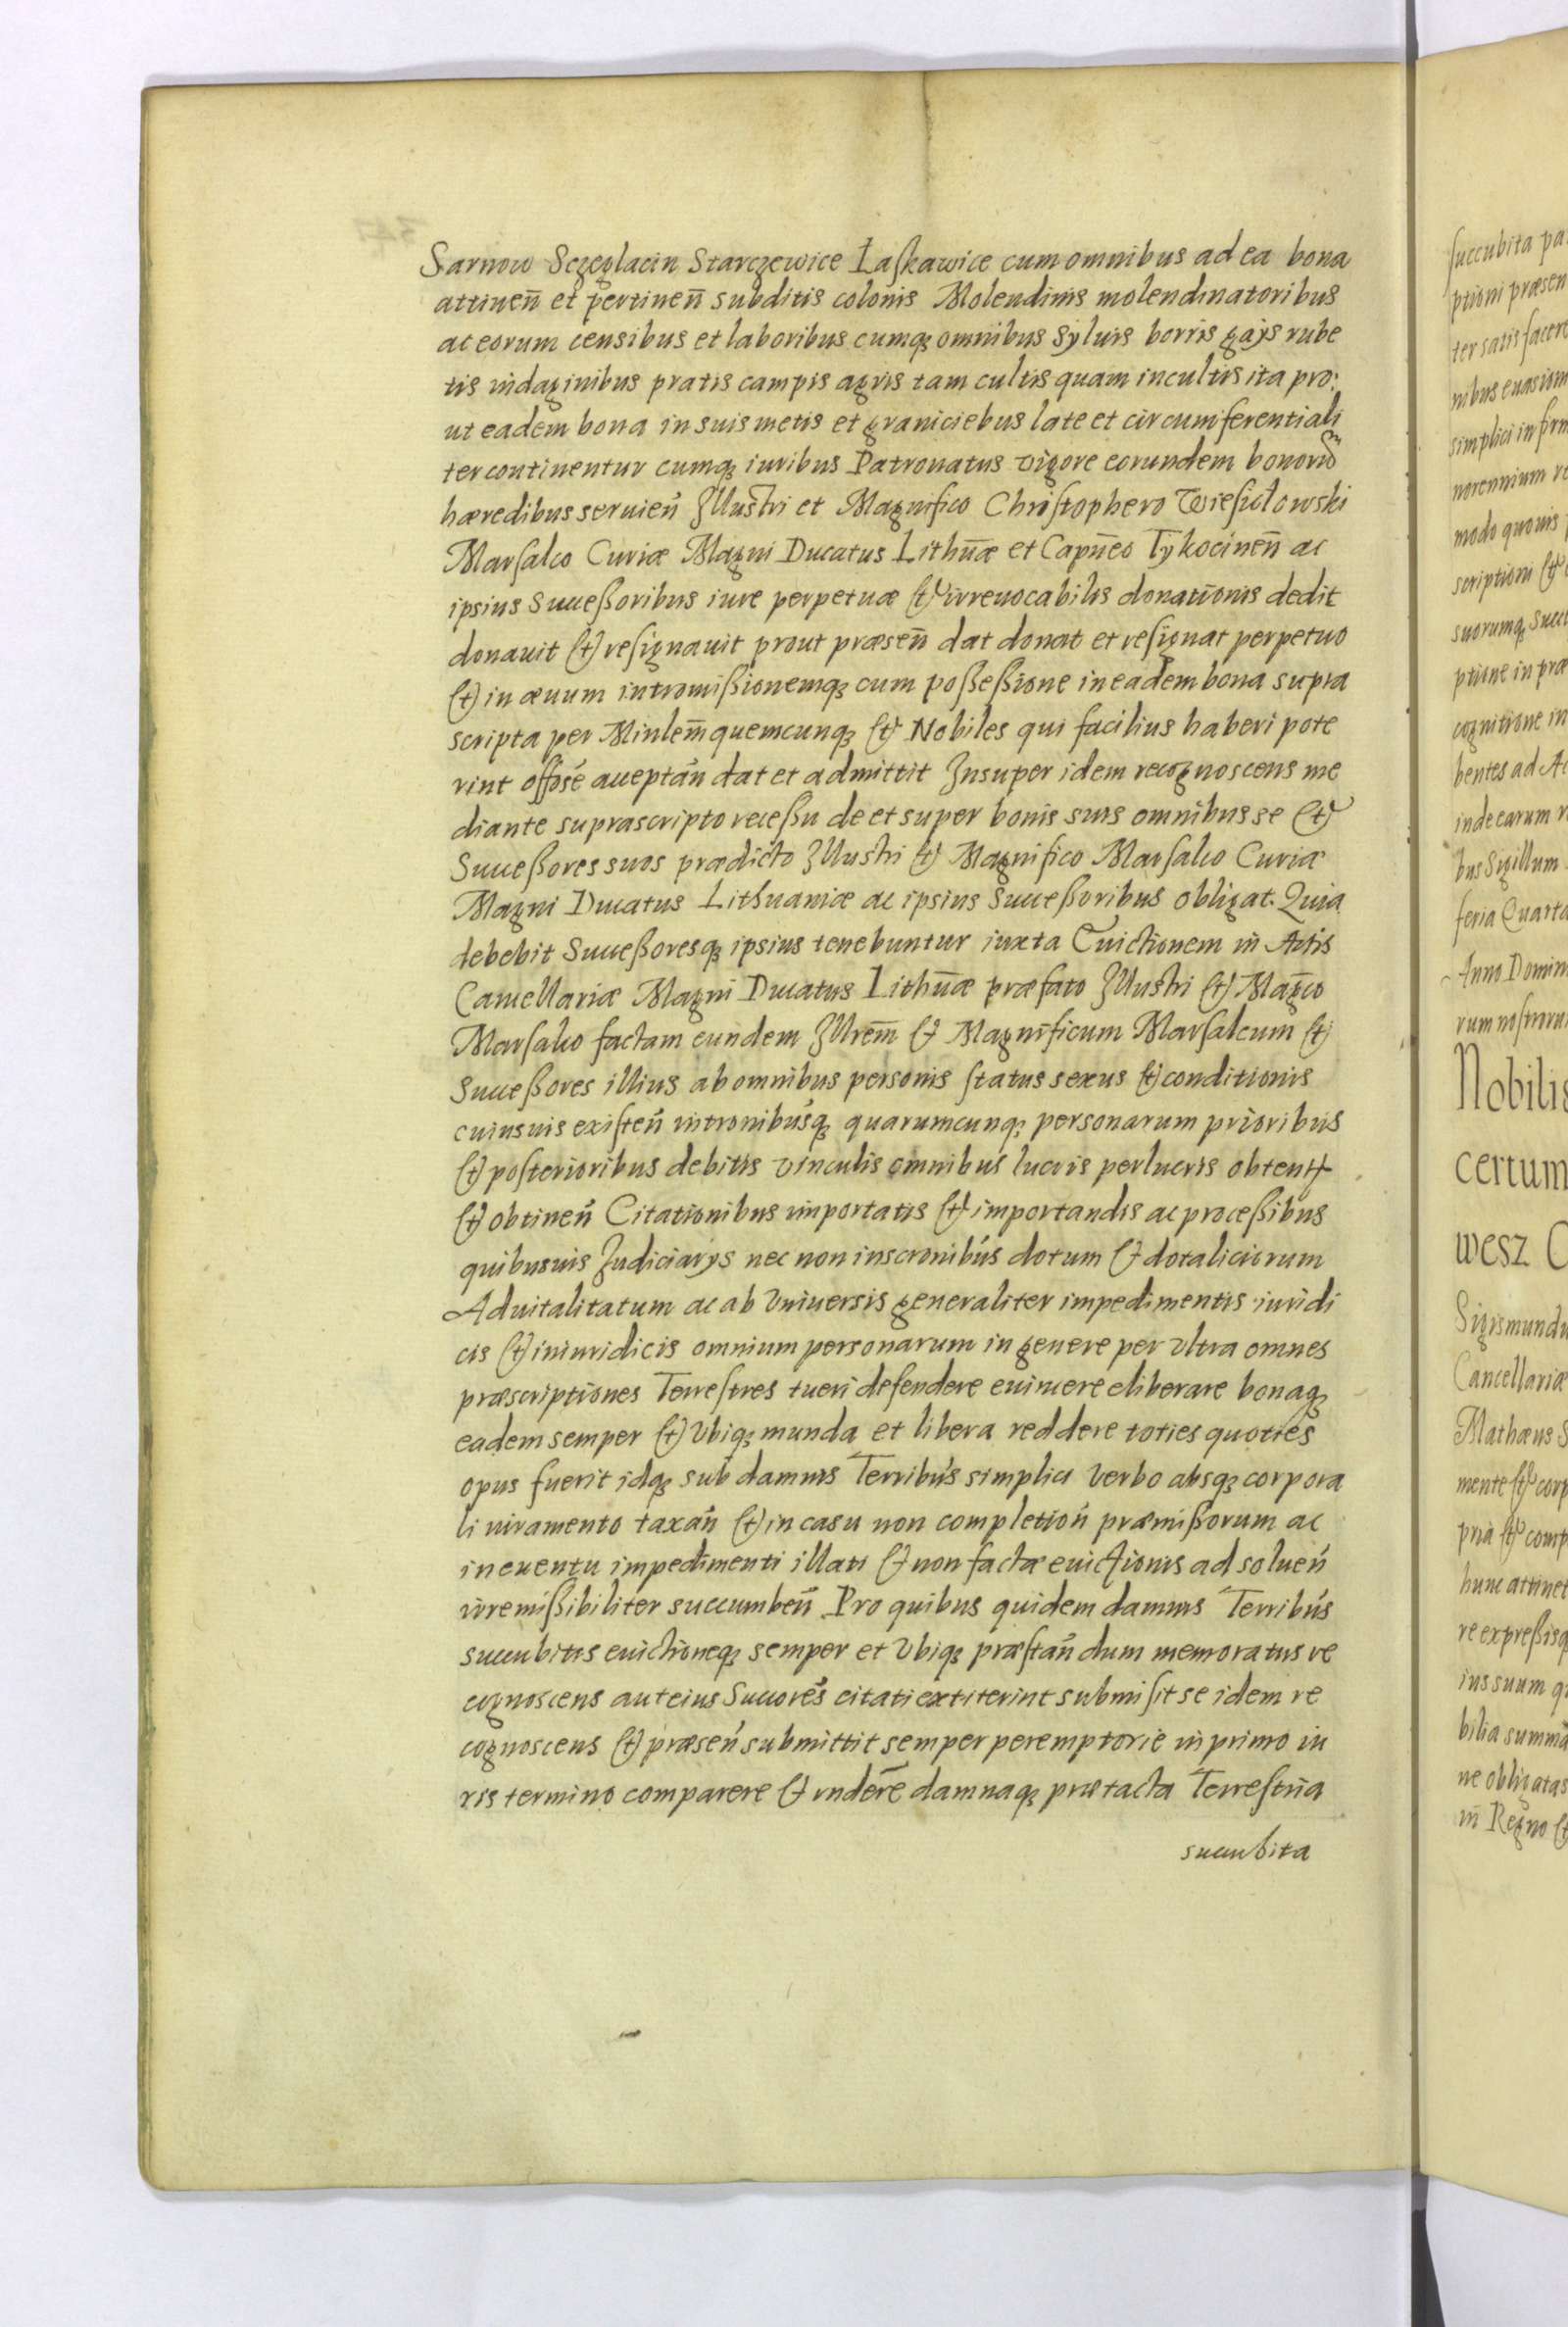 Sarnow Sczeglacin Starczewice Laskawice cum omnibus ad ea bona
attineñ et pertineñ subditis colonis Molendinis molendinatoribus
ac eorum censibus et laboribus cumq₃ omnibus syluis borris gays rube
tis indaginibus pratis campis agris tam cultis quam incultis ita pro:
ut eadem bona in suis metis et graniciebus late et circumferentiali
ter continentur cumq₃ iuribus Patronatus vigore eorundem bonorũ
hæredibus seruieñ Illustri et Magnifico Christophero Wiesiolowski
Marsalco Curiæ Magni Ducatus Lithuãæ et Capñeo Tykocineñ ac
ipsius Successoribus iure perpetuæ et irreuocabilis donationis dedit
donauit et resignauit prout præseñ dat donat et resignat perpetuo
et in æuum intromissionemq₃ cum possessione in eadem bona supra
scripta per Minlem̃ quemcunq₃ et Nobiles qui facilius haberi pote
rint offosé acceptañ dat et admittit Insuper idem recognoscens me
diante suprascripto recessu de et super bonis suis omnibus se et
Successores suos prædicto Illustri et Magnifico Marsalco Curiæ
Magni Ducatus Lithuaniæ ac ipsius Successoribus obligat. Quia
debebit Successoresq₃ ipsius tenebuntur iuxta Euictionem in Actis
Cancellariæ Magni Ducatus Lithuãæ præfato Illustri et Mag̃co
Marsalco factam eundem Illrem̃ et Magnificum Marsalcum et
Successores illius ab omnibus personis status sexus et conditionis
cuiusuis existeñ introniбusq₃ quarumcunq₃ personarum prioribus
et posterioribus debitis vinculis omnibus lucris perlucris obtent
et obtineñ Citationibus importatis et importandis ac processibus
quibusuis Iudiciarys nec non inscronibús dotum et dotaliciorum
Aduitalitatum ac ab Vniuersis generaliter impedimentis iuridi
cis et iniuridicis omnium personarum in genere per vltra omnes
præscriptiones Terrestres tueri defendere euincere eliberare bonaq₃
eadem semper et Vbiq₃ munda et libera reddere toties quoties
opus fuerit idq₃ sub damnis Terribús simplici verbo absq₃ corpora
li iuramento taxañ et in casu non completioñ præmissorum ac
in euentu impedimenti illati et non factæ euictionis ad solueñ
irremissibiliter succumbeñ Pro quibus quidem damnis Terribús
succubitis euictioneq₃ semper et Vbiq₃ præstañ dum memoratus re
cognoscens aut eius Succorés citati extiterint submisit se idem re
cognoscens et præseñ submittit semper peremptorie in primo iu
ris termino comparere et rndere͂ damnaq₃ prætacta Terrestria
succubita
succubita pa
ptioni præsen
ter satisfacere
nibus euasion
simplici infirm
norennium re
modo quouis
scriptioni et
suorumq₃ Succ
ptione in præ
cognitione in
bentes ad Ac
inde earum r
bus Sigillum
feria Quarta
Anno Domin
rum nostroru
Nobilis
certum
wesz C
Sigismundu
Cancellariæ
Mathæus S
mente et corp
pria et comp
hunc attinet
re expressisq
ius suum q
bilia summa
ne obligatas
in Regno et